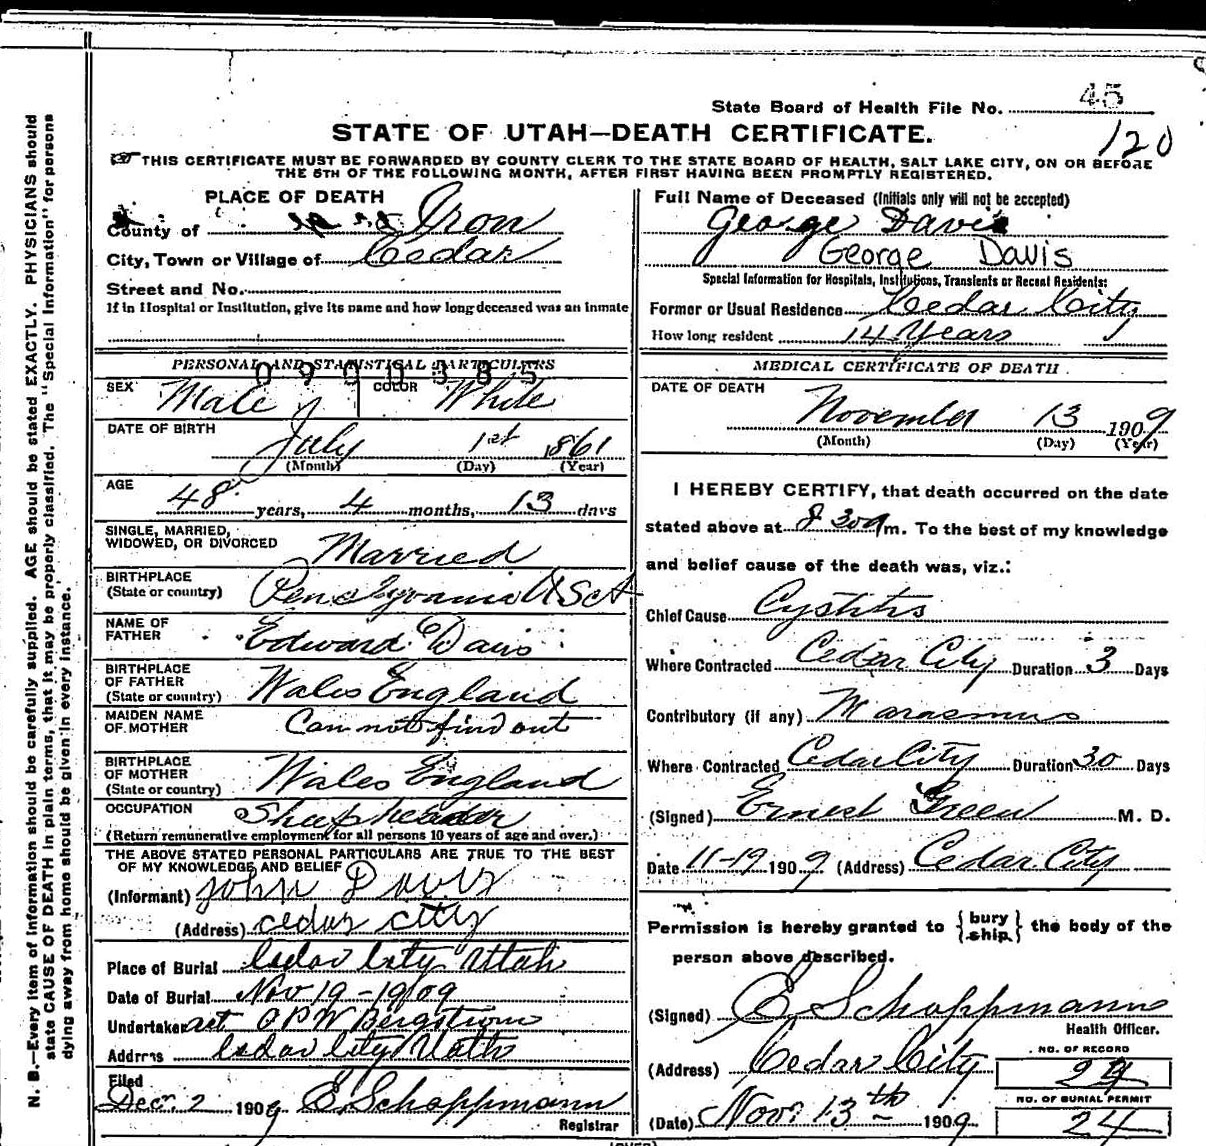 State Board of Health File No. 45
120
STATE OF UTAH—DEATH CERTIFICATE.
THIS CERTIFICATE MUST BE FORWARDED BY COUNTY CLERK TO THE STATE BOARD OF HEALTH, SALT LAKE CITY, ON OR BEFORE
THE 5TH OF THE FOLLOWING MONTH, AFTER FIRST HAVING BEEN PROMPTLY REGISTERED.
PLACE OF DEATH
County of Iron
City, Town or Village of Cedar
Street and No.
If in Hospital or Institution, give its name and how long deceased was an inmate
Full Name of Deceased (Initials only will not be accepted)
George Davis
George Davis
Special Information for Hospitals, Institutions, Transients or Recent Residents:
Former or Usual Residence Cedar City
How long resident 14 Years
PERSONAL AND STATISTICAL PARTICULERS
SEX Male COLOR White
DATE OF BIRTH
July 1st 1861
(Month) (Day) (Year)
AGE
48 years, 4 months, 13 days
SINGLE, MARRIED,
WIDOWED, OR DIVORCED Married
BIRTHPLACE
(State or country) Penslyvania USA
NAME OF
FATHER Edward Davis
BIRTHPLACE
OF FATHER
(State or country) Wales England
MAIDEN NAME
OF MOTHER Can not find out
BIRTHPLACE
OF MOTHER
(State or country) Wales England
OCCUPATION Sheepherder
(Return remunerative employment for all persons 10 years of age and over.)
THE ABOVE STATED PERSONAL PARTICULARS ARE TRUE TO THE BEST
OF MY KNOWLEDGE AND BELIEF
(Informant) John Davis
(Address) cedar city
Place of Burial Cedar City Utah
Date of Burial Nov 19 - 1909
Undertaker act O P W Bergstrom
Address Cedar City Utah
Filed
Dec. 2 1909 E Schoppmann
Registrar
MEDICAL CERTIFICATE OF DEATH
DATE OF DEATH
November 13 1909
(Month) (Day) (Year)
I HEREBY CERTIFY, that death occurred on the date
stated above at 8 30 a m. To the best of my knowledge
and belief cause of the death was, viz.:
Chief Cause Cystitis
Where Contracted Cedar City Duration 3 Days
Contributory (if any) Marasmus
Where Contracted Cedar City Duration 30 Days
(Signed) Ernest Green M. D.
Date 11-19 1909 (Address) Cedar City
Permission is hereby granted to { bury ship } the body of the
person above described.
(Signed) E Schoppmann
Health Officer.
(Address) Cedar City
(Date) Nov. 13th 1909
NO. OF RECORD
NO. OF BURIAL PERMIT
24
N. B.—Every item of information should be carefully supplied. AGE should be stated EXACTLY. PHYSICIANS should
state CAUSE OF DEATH in plain terms, that it may be properly classified. The "Special Information" for persons
dying away from home should be given in every instance.